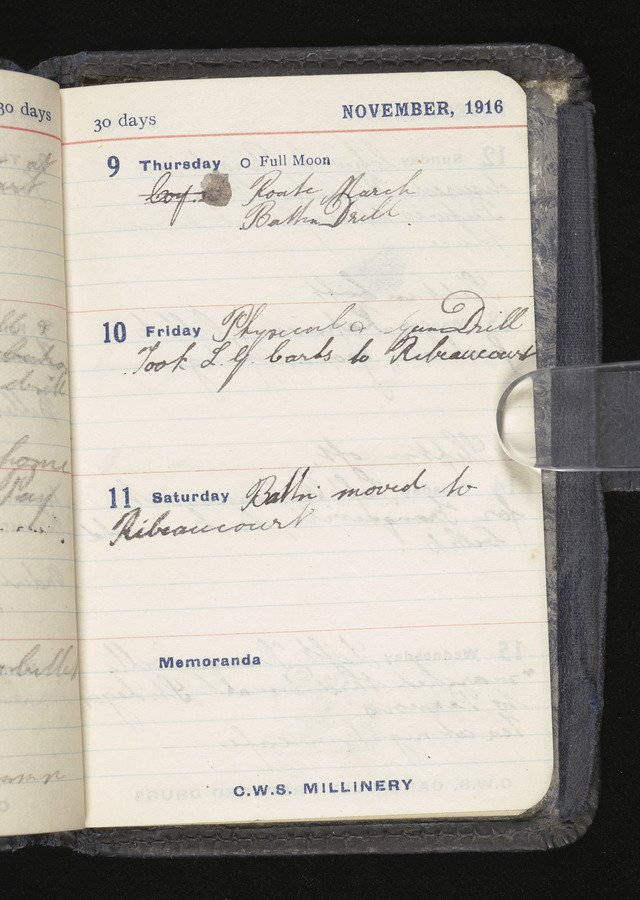 30 days
30 days NOVEMBER, 1916
9 Thursday O Full Moon
Coy. Route March
Battn Drill.
10 Friday Physical & Gun Drill
Took L.G. Carts to Ribeaucourt
11 Saturday Battn moved to
Ribeaucourt
Memoranda
C.W.S. MILLINERY